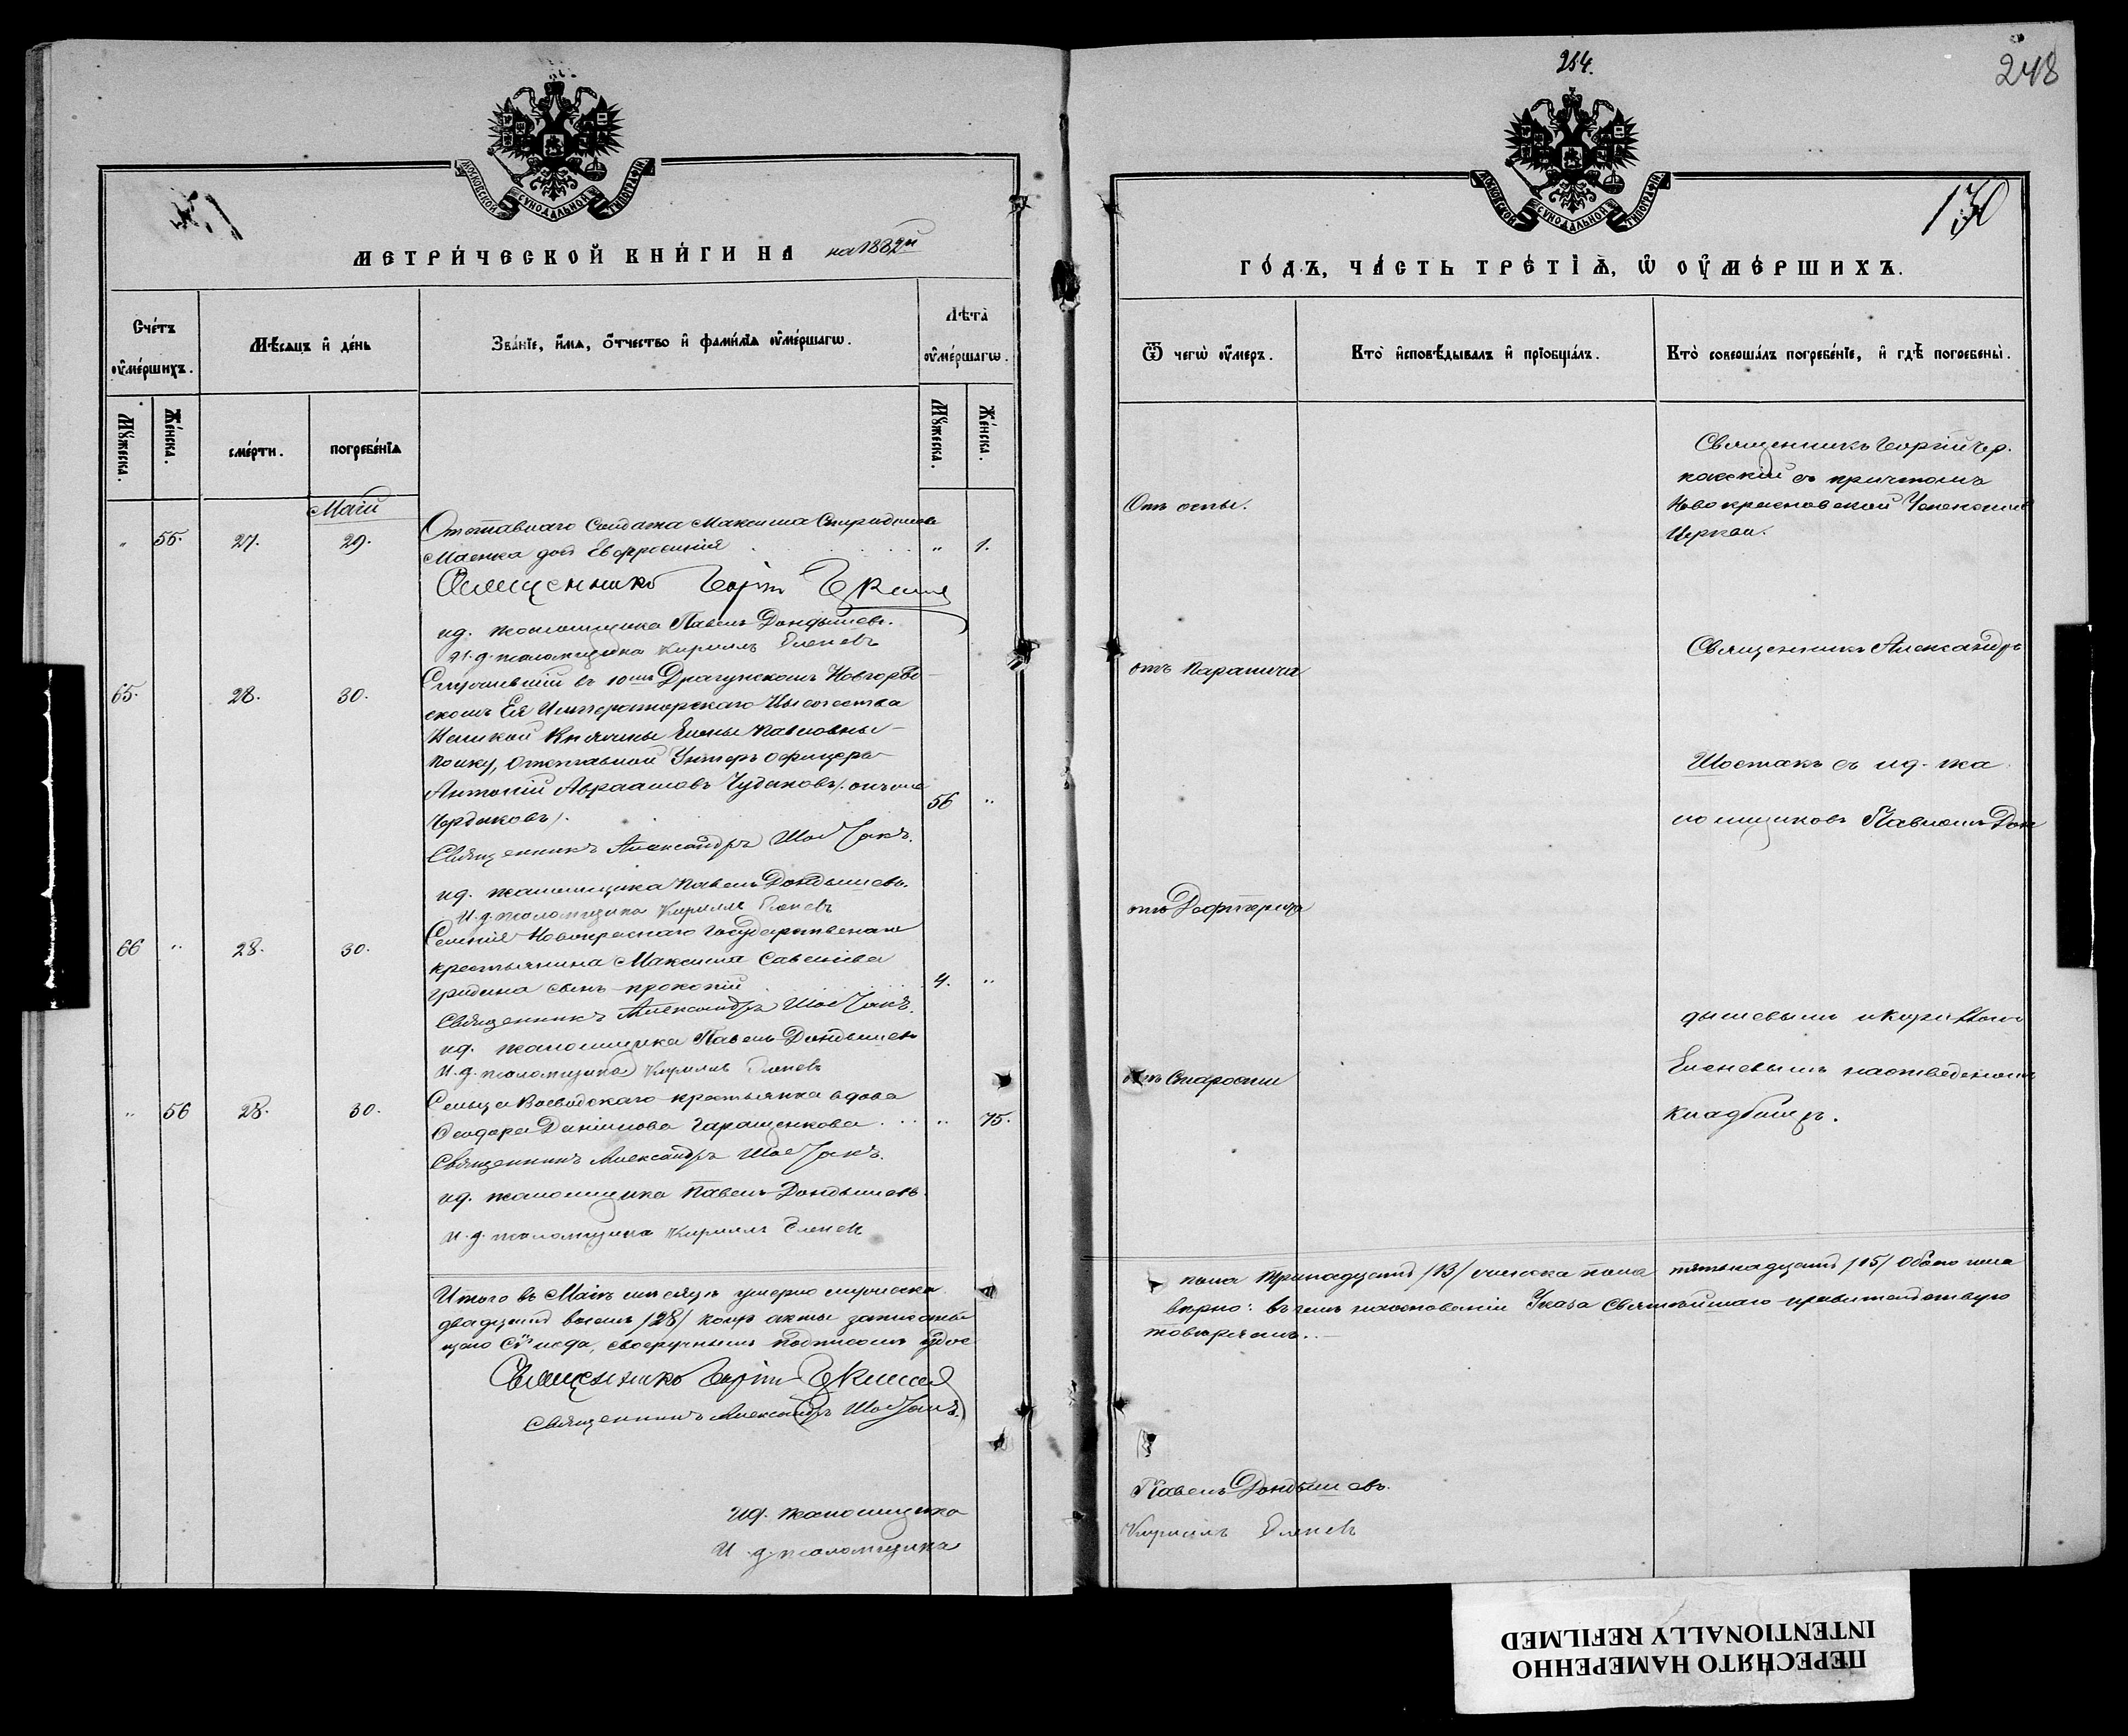 МОСКОВСКОЙ СУНОДАЛЬНОЙ ТИПОГРАФІИ
МЕТРИ́ЧЕСКОЙ КНИ́ГИ НА на 1882й
Сче́тъ ᲂу҆ме́ршихъ.
Мѣ́сяцъ и҆ де́нь
Зва́нїе, и҆́мѧ, ѻ҆́тчество и҆ фами́лїѧ ᲂу҆ме́ршагѡ.
Лѣ́та ᲂу҆ме́ршагѡ.
Мꙋ́жеска.
Же́нска.
сме́рти.
погребе́нїѧ
Мꙋ́жеска.
Же́нска.
Маій
" 55. 27. 29.
Отставнаго Солдата Максима Спиридонова
Маенка дочь Евфросинія " 1.
Священникъ Георгій
ид. псаломщика Павелъ Дондышевъ.
И. д. псаломщика Кириллъ Еленевъ
65. 28. 30.
Служившій въ 10мъ Драгунскомъ Новгород-
скомъ Ея Императорскаго Высочества
Великой Княгини Елены Павловны
полку, отставной Унтеръ офицеръ
Антоній Авраамовъ Чудаковъ (онъ же
Чердаковъ). 56 "
Священникъ Александръ Шостакъ.
ид. псаломщика Павелъ Дондышевъ.
И. д. псаломщика Кириллъ Еленевъ
66 " 28. 30.
Селенія Новокраснаго Государственнаго
крестьянина Максима Савельева
Гридина сынъ Прокопій 4. "
Священникъ Александръ Шостакъ.
ид. псаломщика Павелъ Дондышевъ
И. д. псаломщика Кириллъ Еленевъ
" 56 28. 30.
Сельца Воеводскаго крестьянка вдова
Ѳеодора Даніилова Гаращенкова " 75.
Священникъ Александръ Шостакъ.
ид. псаломщика Павелъ Дондышевъ.
И. д. псаломщика Кириллъ Еленевъ
Итого въ Маіѣ мѣсяцѣ умерло мужеска
двадцать восемь /28/ коихъ акты записаны
щаго Сѵнода, своеручнымъ подписомъ удос
Священникъ Георгій
Священникъ Александръ Шостакъ.
ид. псаломщика
И. д. псаломщика
254.
248
130
МОСКОВСКОЙ СУНОДАЛЬНОЙ ТИПОГРАФІИ
ГО́ДЪ, ЧА́СТЬ ТРЕ́ТІѦ, Ѡ҆ ОУ҆МЕ́РШИХЪ.
Ѿ чегѡ̀ ᲂу҆́меръ.
Кто̀ и҆сповѣ́дывалъ и҆ прїобща́лъ.
Кто̀ соверша́лъ погребе́нїе, и҆ гдѣ̀ погребены̀.
Отъ оспы.
Священникъ Георгій Чер.
каскій съ причтомъ
Новокрасновской Успенской
Церкви.
отъ Паралича
Священникъ Александръ
Шостакъ съ ид. пса
ломщиковъ Павломъ Дон
отъ Дифтерита
дышевымъ и Кирилломъ
отъ Старости
Еленевымъ на отведенномъ
кладбищѣ.
пола тринадцать /13/ женска пола пятнадцать /15/ Обоего пола
вѣрно: въ чемъ на основаніи Указа Святѣйшаго правительствую
товѣряемъ.
Павелъ Дондышевъ.
Кириллъ Еленевъ
ПЕРЕСНЯТО НАМЕРЕННО
INTENTIONALLY REFILMED